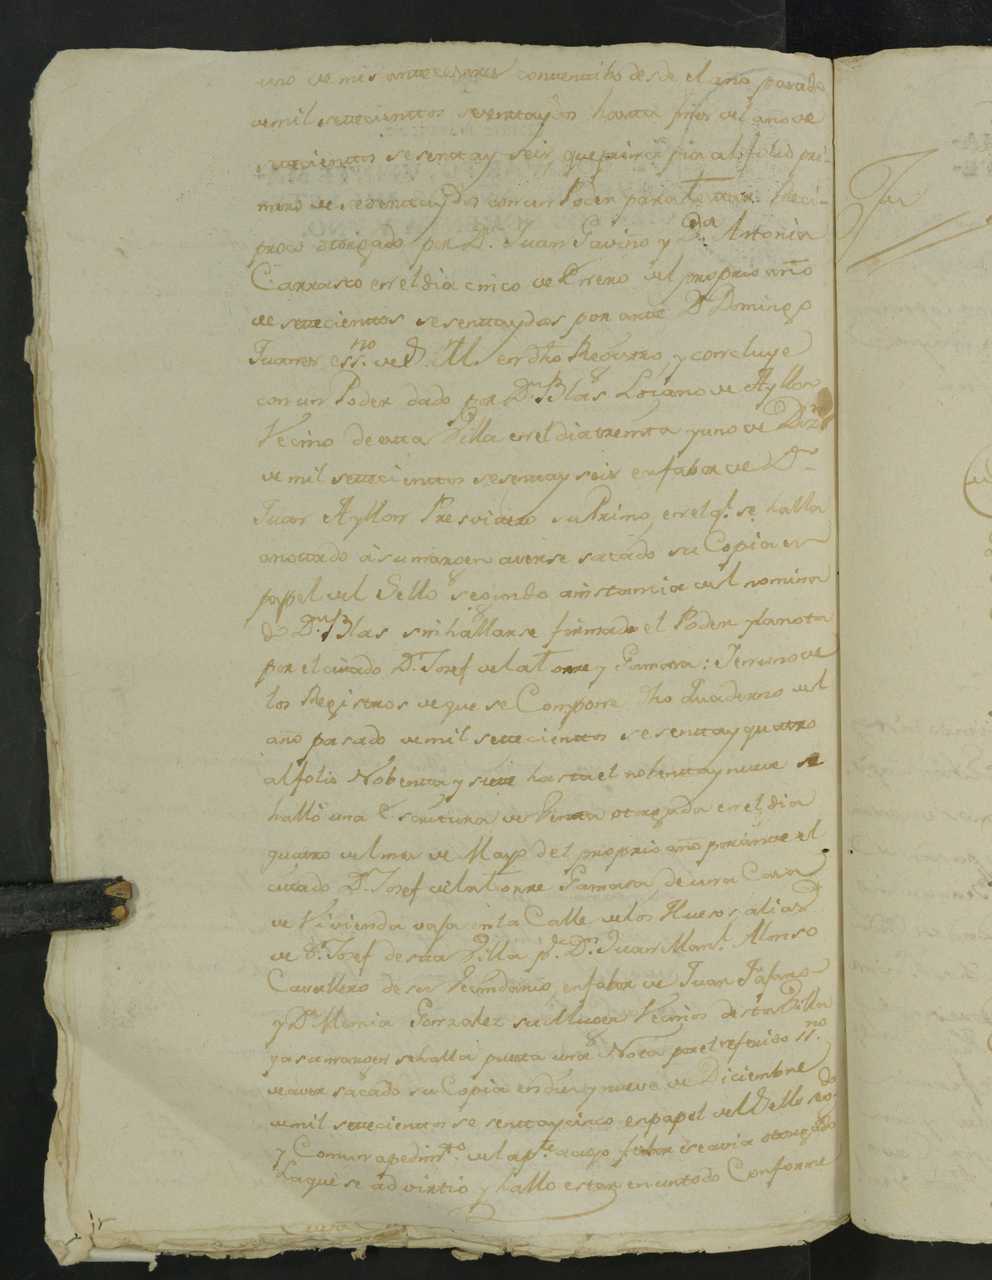 uno de mis antecesores convenito desde el año pasado
de mil settecienttos sesenttaydos hasta fines del año de
settecientos sesenta y seis, que principia al folio pri-
mero de sesentaydos con un Poder para testar Reci-
proco otorgado por Dn. Juan Gaviño y Da. Antonia
Carrasco en el dia cinco de Enero del proprio año
de settecienttos sesenttaydos por ante Dn Domingo
Juarez essno. de S.M. en dho Reḡurro, y concluye
con un Poder dado por Dn. Blas Lozano de Ayllon
Vecino de esta Villa en el dia treinta y uno de Dizre
de mil settecienttos sesentay seis en fabor de Dn
Juan Ayllon Presvitero su Primo, en el q. se halla
anottado á su margen averse sacado su Copia en
papel del Sello segundo a instancia del nomina
do Dn. Blas sin hallarse firmado el Poder y la nota
por el cittado Dn. Josef de la Torre y Gamara: Jenuno de
los Registros de que se Compone dho Quaderno del
año pasado de mil settecienttos sesenttay quattro
al folio Nobentta y siette hasta el nobenttay nueve se
halló una Escritura de Venta otorgada en el dia
quatro del mes de Mayo del proprio año por ante el
cittado Dn. Josef de la Torre Gamara de una Casa
de Vivienda vaja en la Calle de los Huesos, alias
de Sn. Josef de esta Villa pr. Dn. Juan Manl. Alonso
Cavallero de su Vecindario, en fabor de Juan
y Da Maria Gonzalez su Muger Vecinos de esta Villa
y a su margen se halla puesta una Nota por el referido ssno.
de aver sacado su Copia en diez y nueve de Diciembre
de mil settecienttos sesenttaycinco en papel del Sello sdo.
y Comun a pedimtto. de la pte. a cuyo fabor se avia otorgado
La que se advirtió y halló estar en un todo Conforme